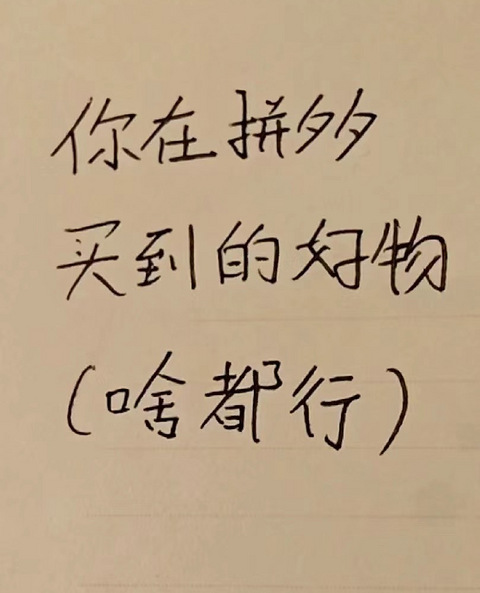 你在拼夕夕
买到的好物
(啥都行)